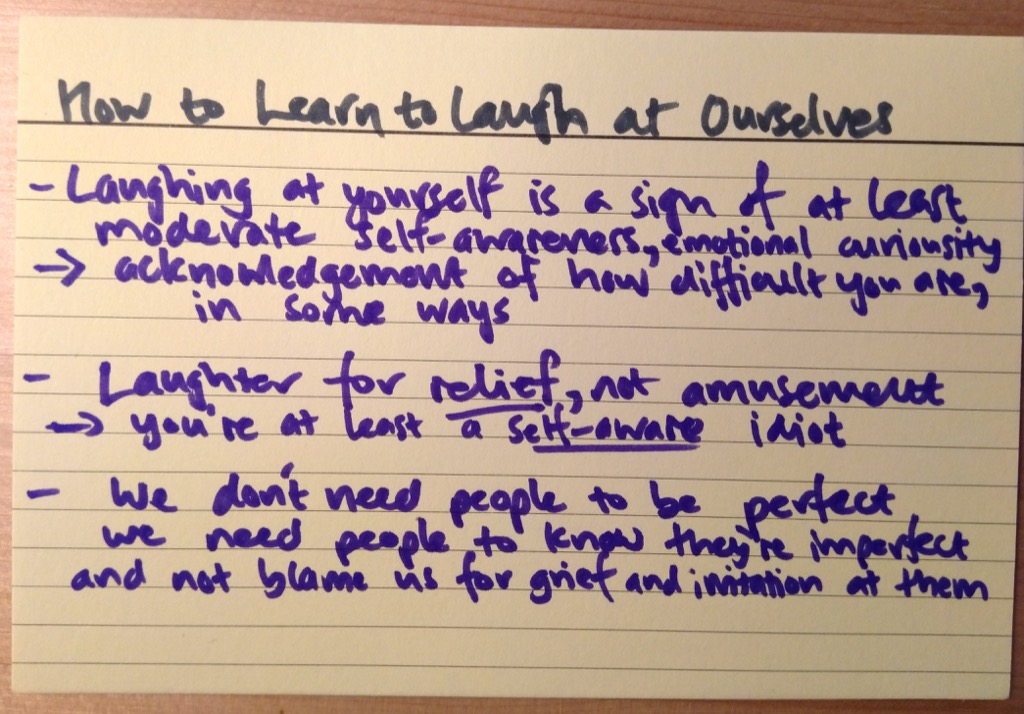 How to Learn to Laugh at Ourselves
- Laughing at yourself is a sign of at least
moderate self-awareness, emotional curiousity
→ acknowledgement of how difficult you are,
in some ways
- Laughter for relief, not amusement
→ you're at least a self-aware idiot
- We don't need people to be perfect
we need people to know they're imperfect
and not blame us for grief and irritation at them